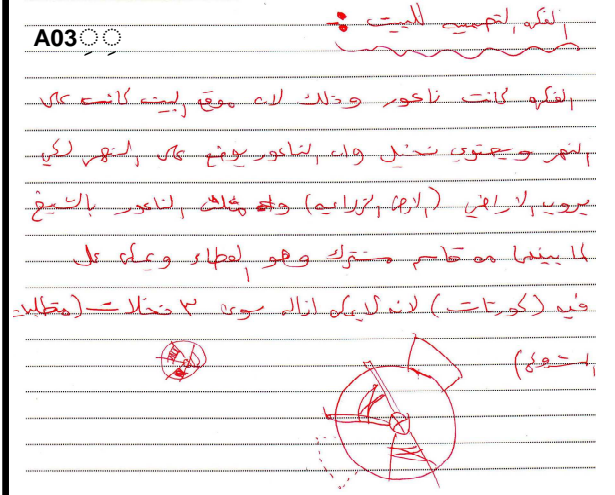 A03
الفكره التصميميه للبيت :
الفكره كانت ناعور وذلك لان موقع البيت كانت على
النهر ويحتوي نخيل وان الناعور يوضع على النهر لكي
يروي الاراضي (الارض الزراعيه) الناعور بالشيخ
لما بينهما من قاسم مشترك وهو العطاء وعمله
فيه (كورتات) لانه لا يمكن ازاله سوى ٣ نخلات (متطلبات
المشروع)